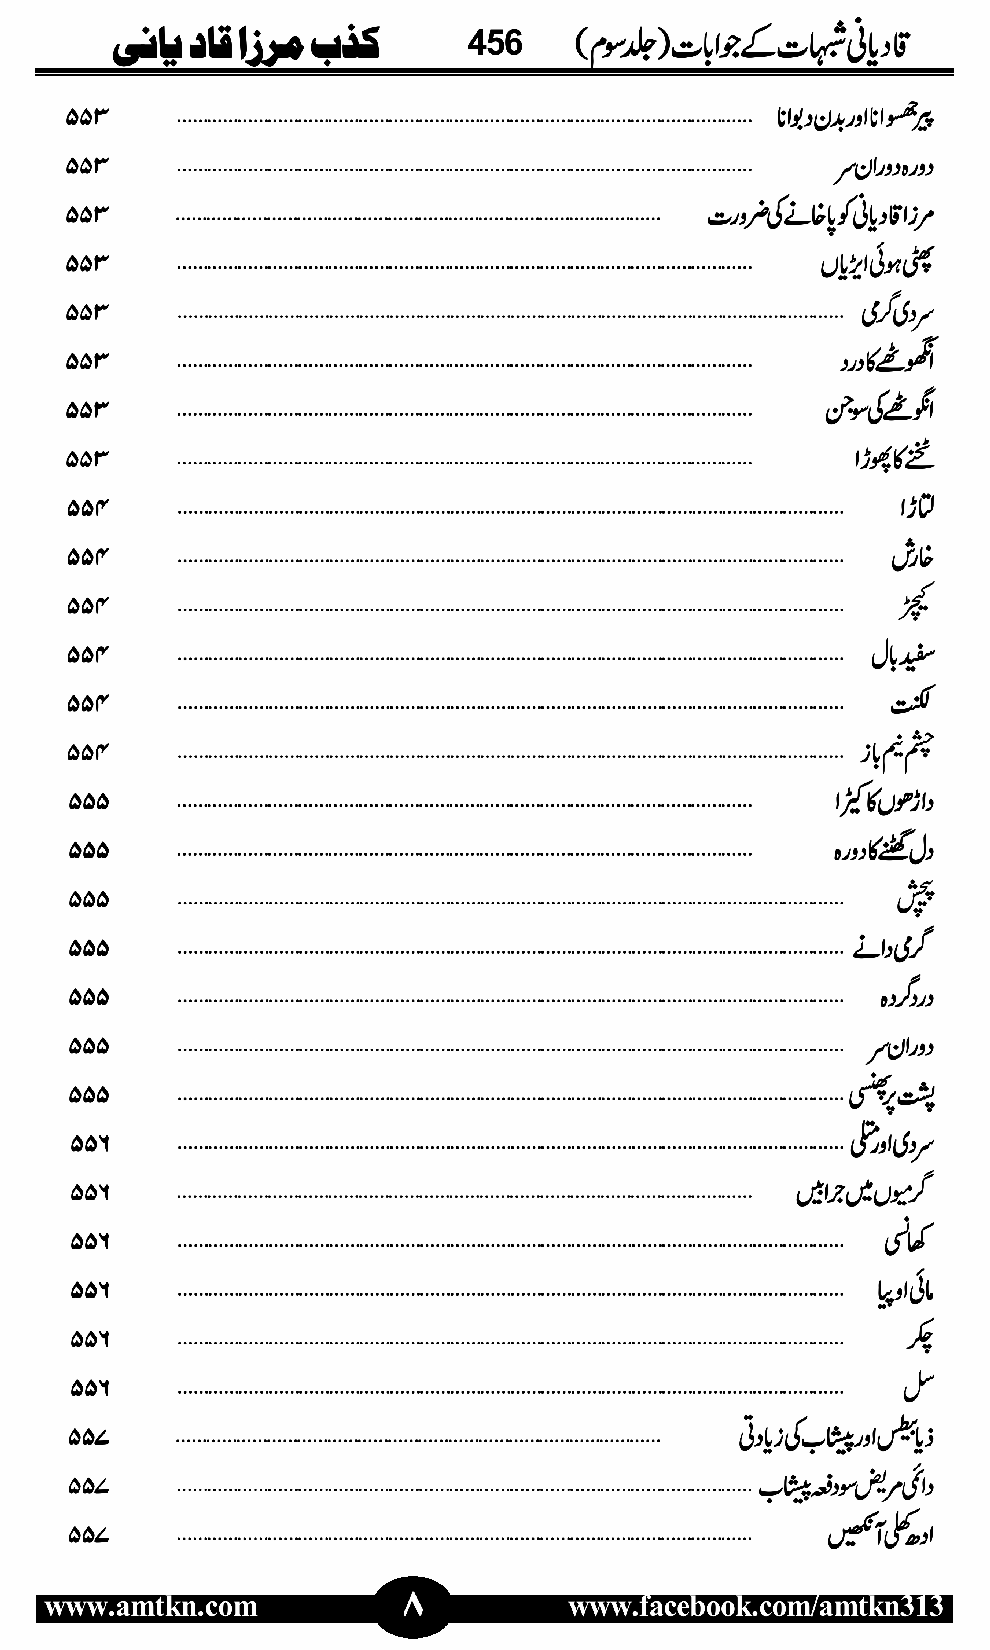 قادیانی شبہات کے جوابات (جلد سوم) 456 کذب مرزا قادیانی
پیر جھسوانا اور بدن دبوانا ۵۵۳
دورہ دوران سر ۵۵۳
مرزا قادیانی کو پاخانے کی ضرورت ۵۵۳
پھٹی ہوئی ایڑیاں ۵۵۳
سردی گرمی ۵۵۳
انگھوٹھے کا درد ۵۵۳
انگوٹھے کی سوجن ۵۵۳
ٹخنے کا پھوڑا ۵۵۳
لتاڑا ۵۵۴
خارش ۵۵۴
کیچڑ ۵۵۴
سفید بال ۵۵۴
لکنت ۵۵۴
چشم نیم باز ۵۵۴
داڑھوں کا کیڑا ۵۵۵
دل گھٹنے کا دورہ ۵۵۵
پیچش ۵۵۵
گرمی دانے ۵۵۵
درد گردہ ۵۵۵
دوران سر ۵۵۵
پشت پر پھنسی ۵۵۵
سردی اور متلی ۵۵۶
گرمیوں میں جرابیں ۵۵۶
کھانسی ۵۵۶
مائی اوپیا ۵۵۶
چکر ۵۵۶
سل ۵۵۶
ذیابیطس اور پیشاب کی زیادتی ۵۵۷
دائمی مریض سو دفعہ پیشاب ۵۵۷
ادھ کھلی آنکھیں ۵۵۷
www.amtkn.com ۸ www.facebook.com/amtkn313